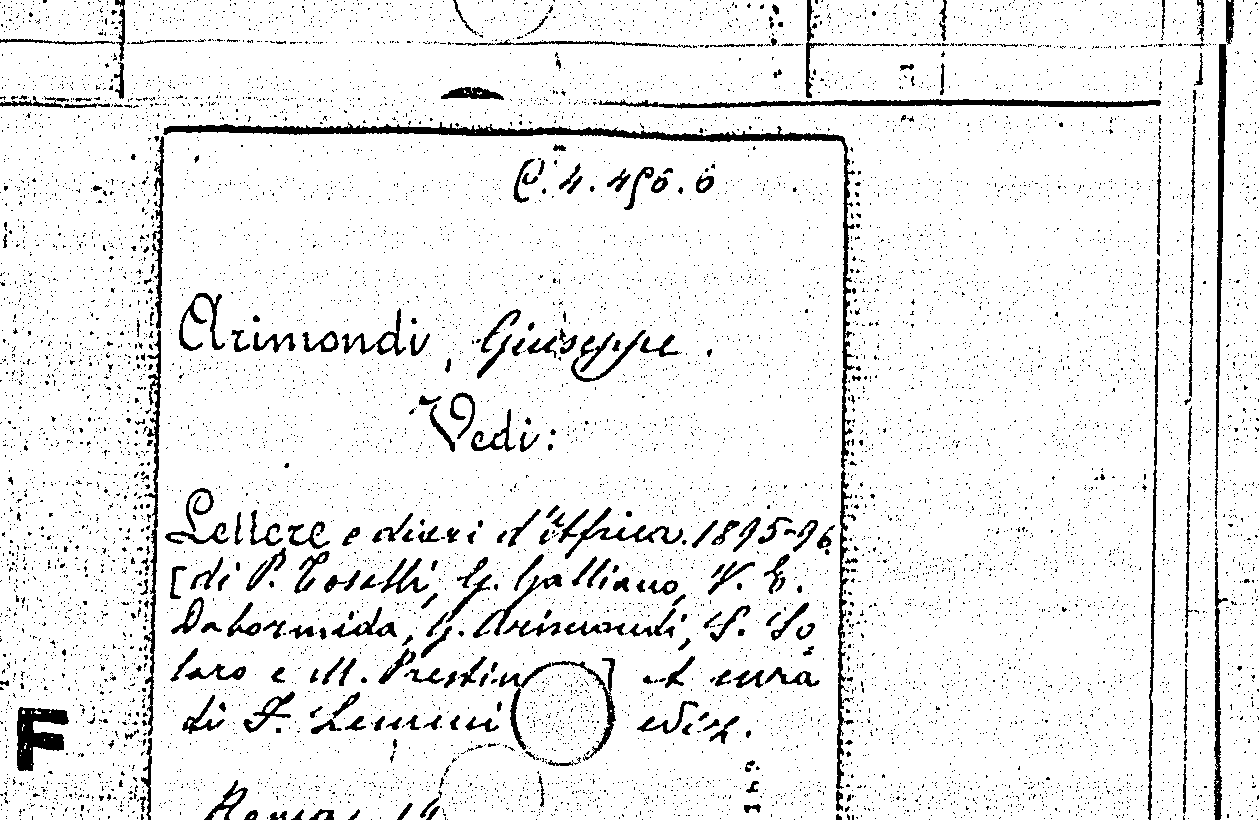 C.4.456.6
Arimondi, Giuseppe.
Vedi:
Lettere e diari d'Africa. 1895-96
[di P. Toselli, G. Galliano, V. E.
Dabormida, G. Arimondi, S. So
laro e M. Prestin ] A cura
di F. Lemmi ediz.
F
Roma, 19